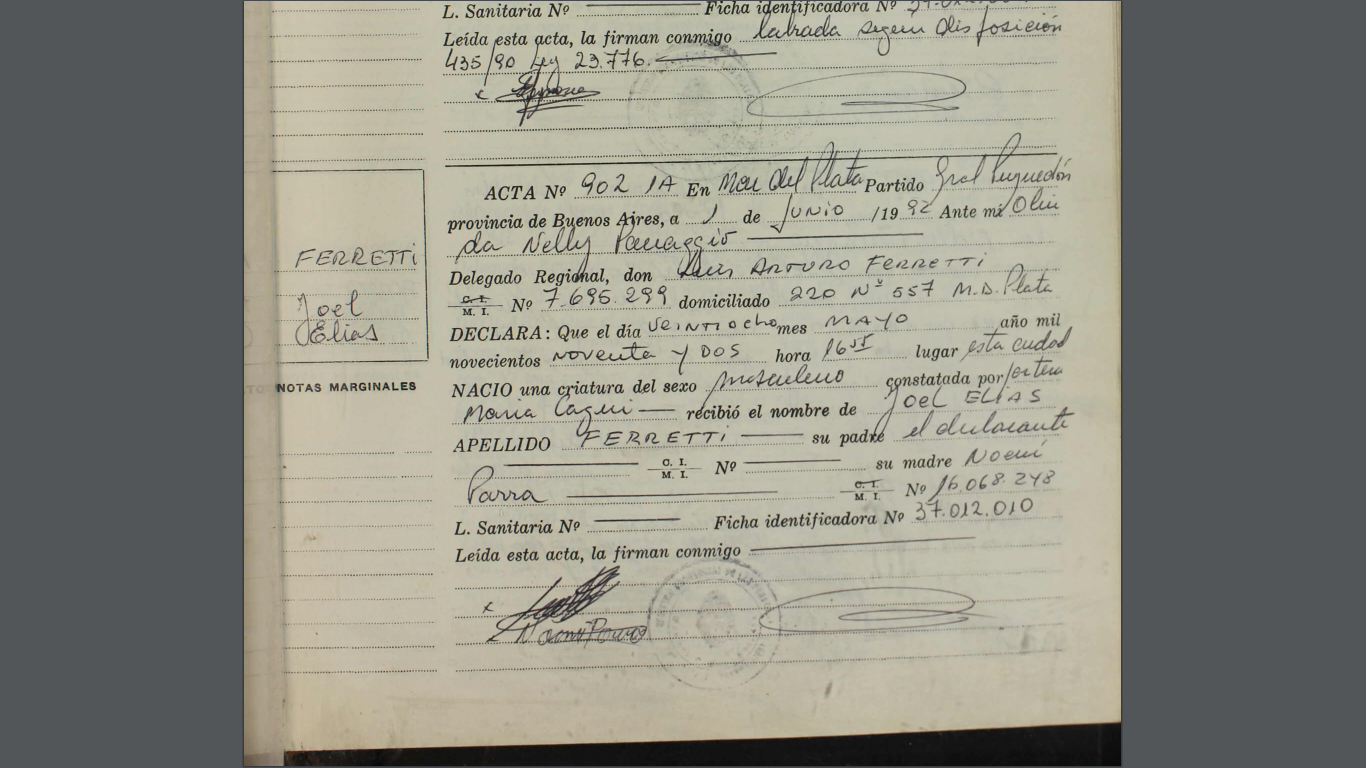 L. Sanitaria Nº Ficha identificadora Nº
Leída esta acta, la firman conmigo labrada según Disposición
435/90 Ley 23.776.
ACTA Nº 902 1A En Mar del Plata Partido Gral Pueyrredón
provincia de Buenos Aires, a 1 de JUNIO /1992 Ante mí Olin
da Nelly
Delegado Regional, don Luis ARTURO FERRETTI
C. I.
M. I. Nº 7.695.299 domiciliado 220 Nº 557 M.D. Plata
DECLARA: Que el día VEINTIOCHO mes MAYO año mil
novecientos noventa y DOS hora 16 55 lugar esta ciudad
NACIO una criatura del sexo masculino constatada por
Maria recibió el nombre de JOEL ELIAS
APELLIDO FERRETTI su padre el declarante
C. I.
M. I. Nº su madre Noemí
Parra C. I.
M. I. Nº 16.068.248
L. Sanitaria Nº Ficha identificadora Nº 37.012.010
Leída esta acta, la firman conmigo
FERRETTI
Joel
Elias
NOTAS MARGINALES